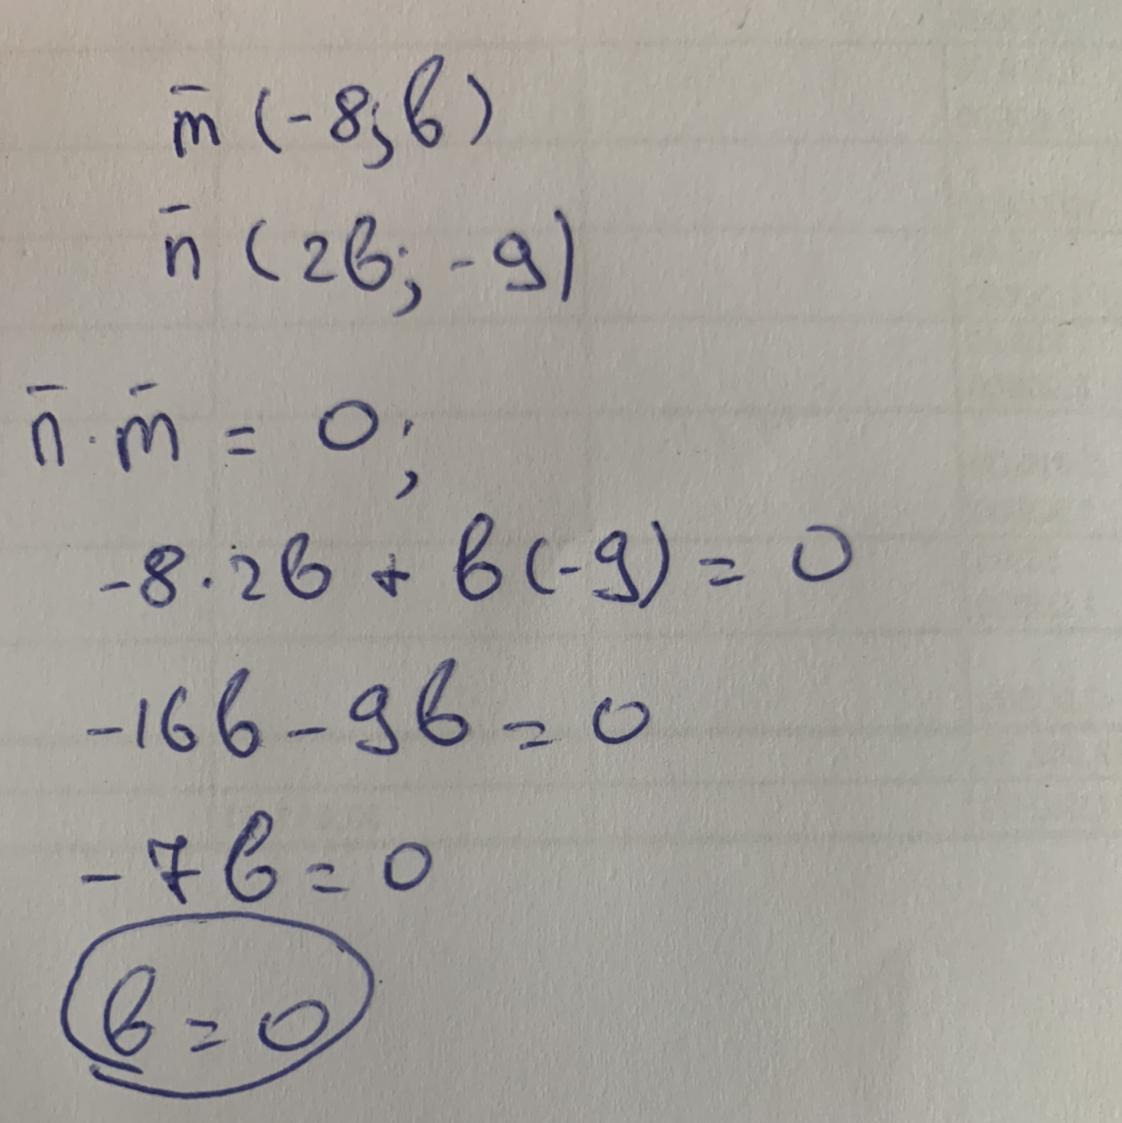 m̄ (-8; b)
n̄ (2b; -9)
n̄ · m̄ = 0;
-8 · 2b + b(-9) = 0
-16b - 9b = 0
-7b = 0
b = 0